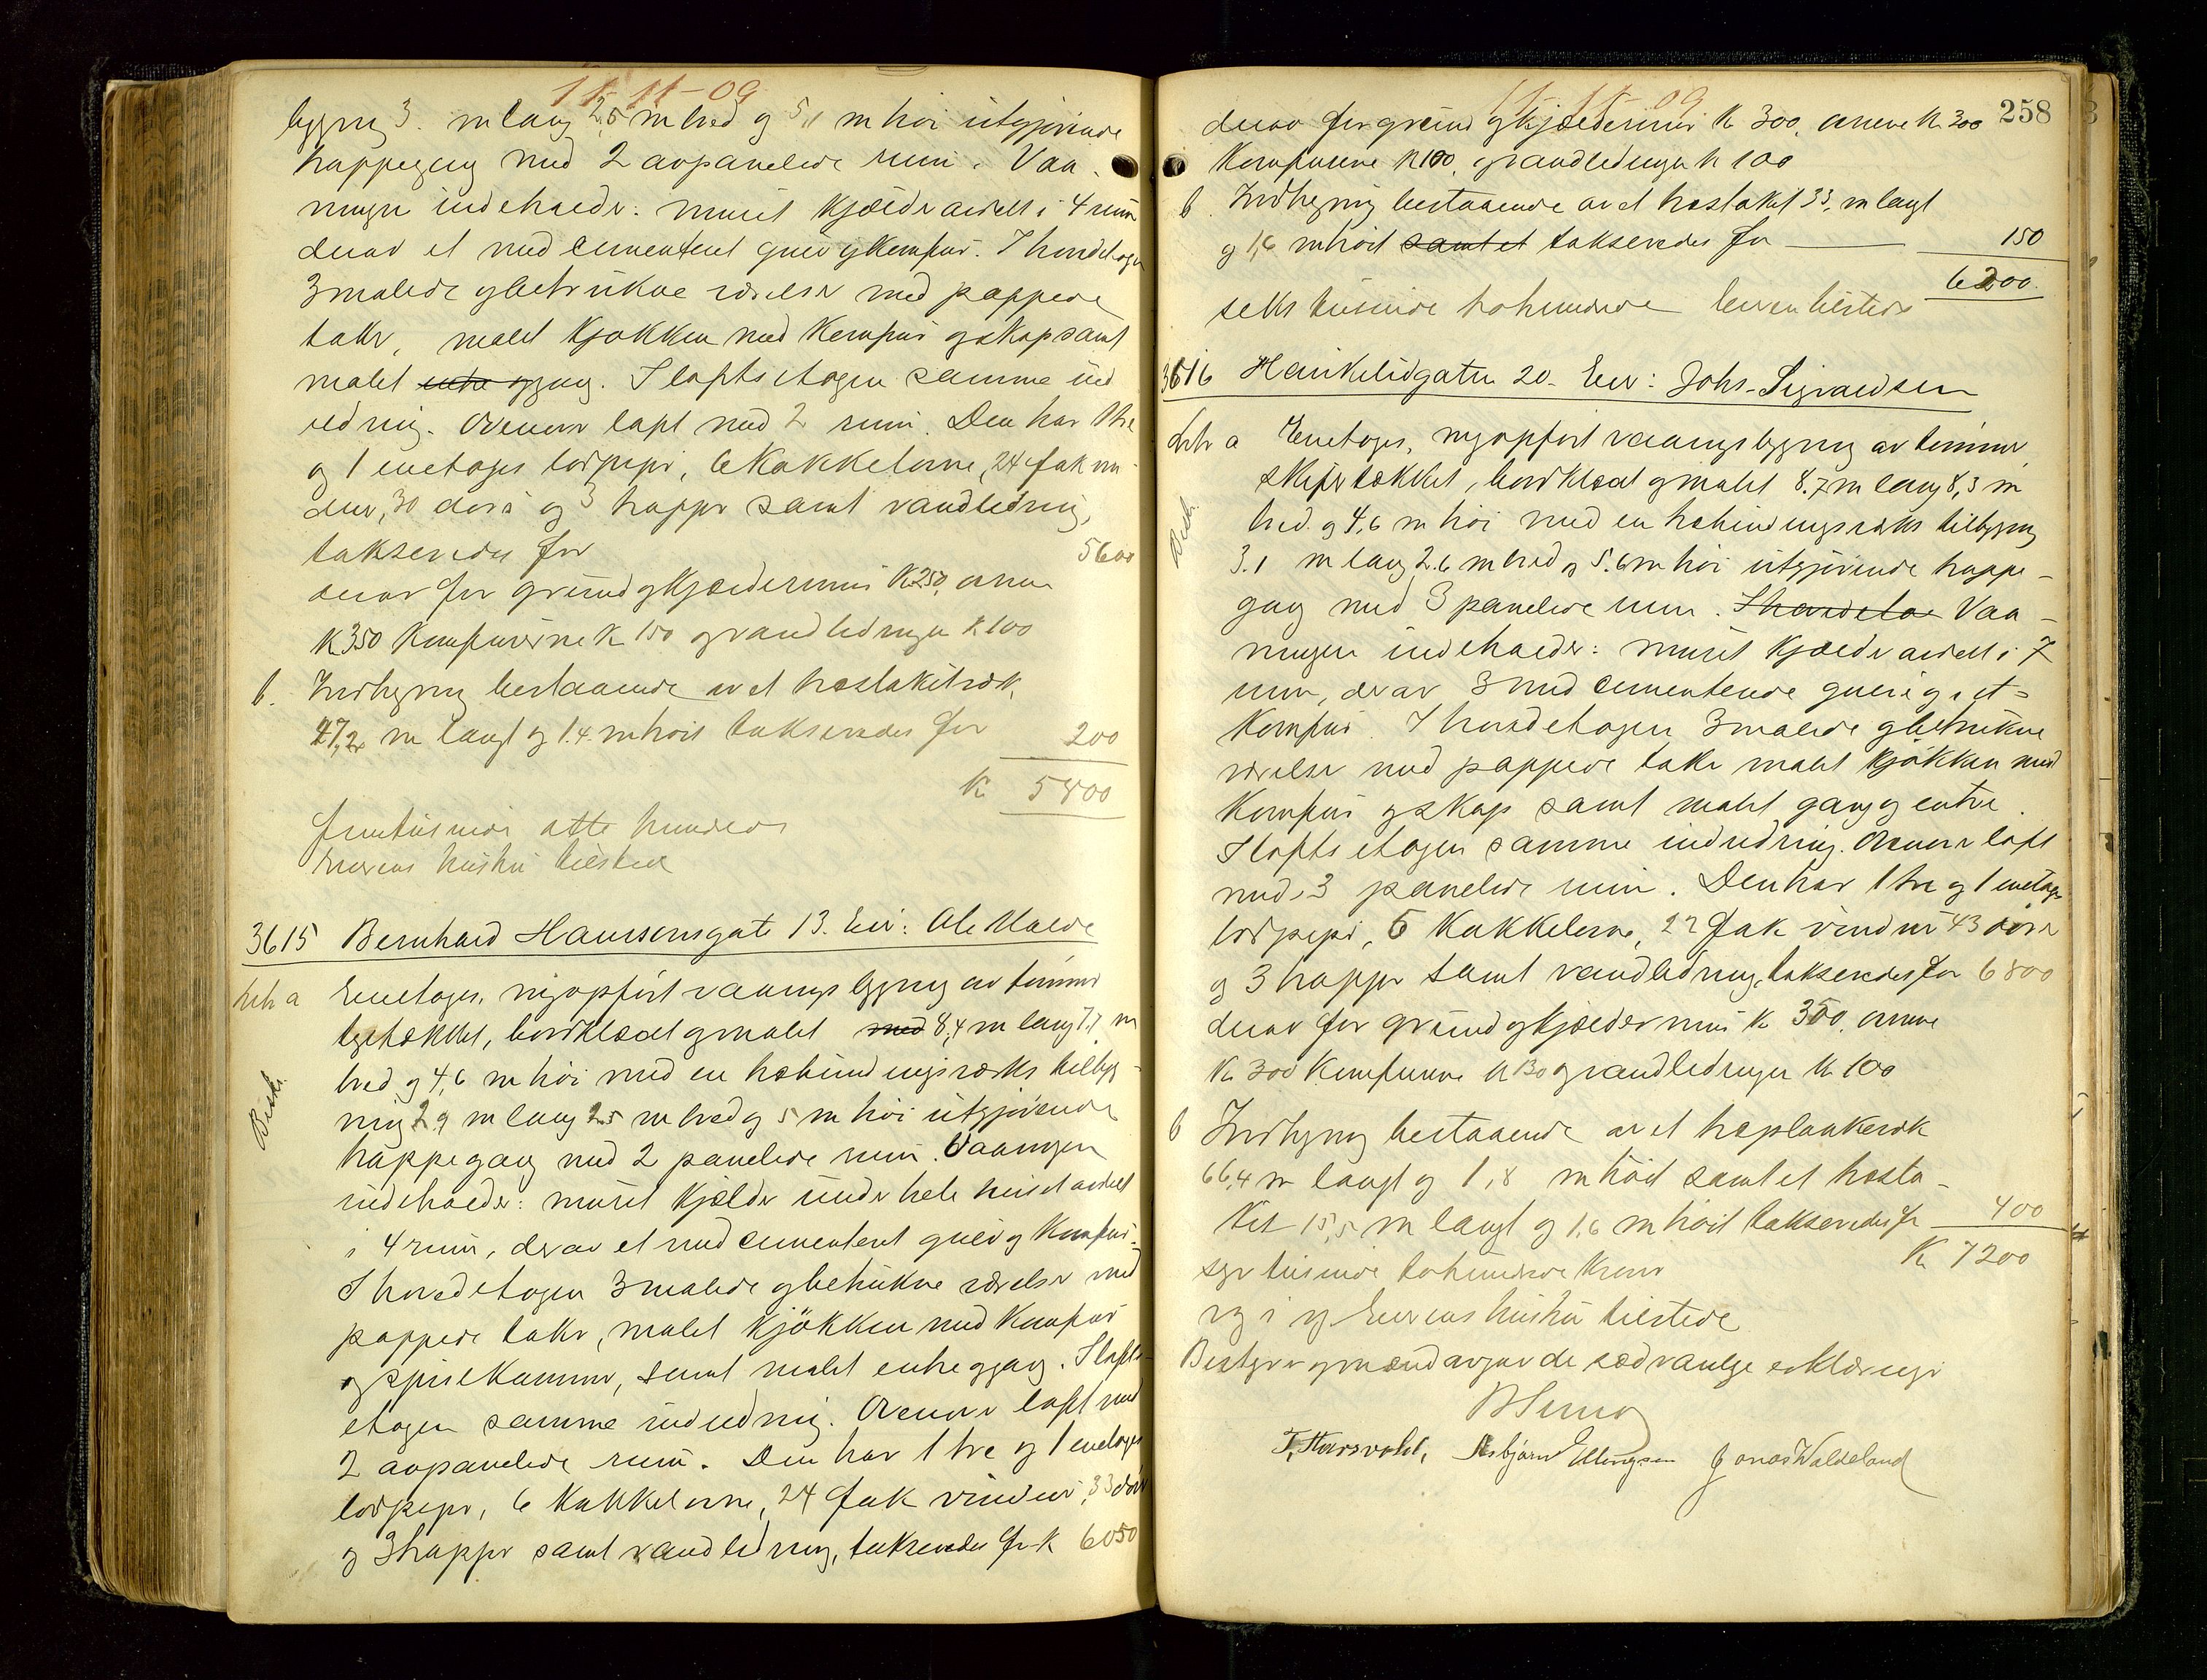 11-11-09
bygning 3. m lang 2,5 m bred og 5,1 m høi utgjørende
trappegang med 2 avpanelede rum. Vaa-
ningen indeholder: muret kjælder avdelt i 4 rum
derav et med cementeret gulv og komfur. I hovedetagen
3 malede og betrukne værelser med pappede
taker, malet kjøkken med komfur og skap samt
malet entre og gang. I loftsetagen samme ind
redning. Ovenover loft med 2 rum. Den har 1 tre
og 1 enetages torpipe, 6 kakkelovne, 24 fak vin-
duer, 30 dører og 3 trapper samt vandledning,
takseredes for 5600
derav for grund og kjældermur K 250, ovnene
K 350 komfurerne K 150 og vandledningen K 100
b. Indhegning bestaaende av et træstakitræk
27,2 m langt og 1.4 m høit takseredes for 200
K 5800
femtusinde otte hundrede
Eierens hustru tilstede
3615 Bernhard Hanssensgate 13. Eier: Ole Malde
litr a Enetages, nyopført vaaningsbygning av tømmer
teglhækket, bordklædt og malet med 8,4 m lang 7,7 m
bred og 4,6 m høi med en trebindingsværks tilbyg-
ning 2.9 m lang 2.5 m bred og 5 m høi utgjørende
trappegang med 2 panelede rum. Vaaningen
indeholder: muret kjælder under hele huset avdelt
i 4 rum, derav et med cementeret gulv og komfur.
I hovedetagen 3 malede og betrukne værelser med
pappede taker, malet kjøkken med komfur
og spisekammer, samt malet entre og gang. I lofts-
etagen samme indredning. Ovenover loft med
2 avpanelede rum. Den har 1 tre og 1 enetages
torpipe, 6 kakkelovne, 24 fak vinduer, 33 dører
og 3 trapper samt vandledning, takseredes for K 6050
Besk.
11-11-09
258
derav for grund og kjældermur K 300, ovnene K 300
Komfurene K 100, og vandledningen K 100
b. Indhegning bestaaende av et træstakit 33, m langt
og 1,6 m høit samt et takseredes for 150
6200
seks tusinde tohundrede Eieren tilstede
3616 Haukelidgaten 20. Eier: Johs. Sigvaldsen
litr a Enetages, nyopført vaaningsbygning av tømmer
skifertækket, bordklædt og malet 8.7 m lang 8,3 m
bred og 4,6 m høi med en træbindingsværks tilbygning
3.1 m lang 2.6 m bred og 5.6 m høi utgjørende trappe-
gang med 3 panelede rum. I hovedeta Vaa-
ningen indeholder: muret kjælder avdelt i 7
rum, derav 3 med cementerede gulv og et
komfur. I hovedetagen 3 malede og betrukne
værelser med pappede taker malet kjøkken med
komfur og skap samt malet gang og entre
I loftsetagen samme indredning. Ovenover loft
med 3 panelede rum. Den har 1 tre og 1 enetages
torpipe, 5 kakkelovne, 22 fak vinduer 43 dører
og 3 trapper samt vandledning, takseredes for 6800
derav for grund og kjældermur K 350, ovnene
K 300 komfurene K 130 og vandledningen K 100
b Indhegning bestaaende av et træplankeræk
66,4 m langt og 1,8 m høit samt et træsta-
kit 15,5 m langt og 1,6 m høit takseredes for 400
K 7200
syv tusinde tohundrede kroner
Eierens hustru tilstede
Bestyrer og mænd avgav de sædvanlige erklæringer
T. Thorsvold, Asbjørn Ellingsen Jonas Waldeland
Besk.